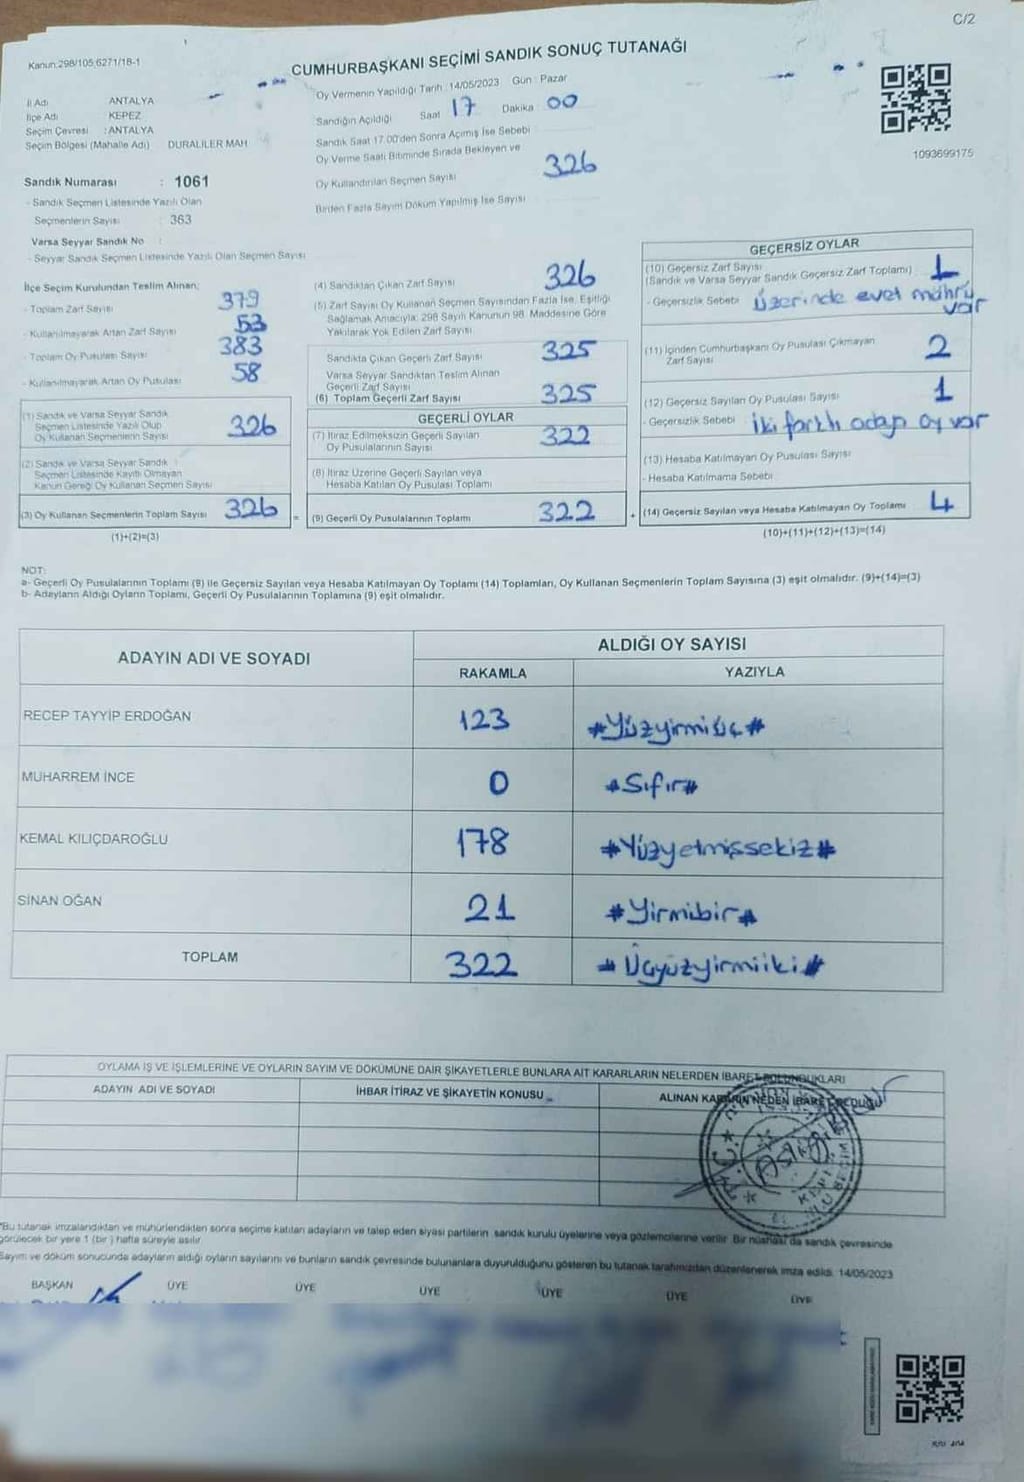 C/2
Kanun:298/105;6271/18-1
CUMHURBAŞKANI SEÇİMİ SANDIK SONUÇ TUTANAĞI
İl Adı ANTALYA
İlçe Adı KEPEZ
Seçim Çevresi : ANTALYA
Seçim Bölgesi (Mahalle Adı) DURALİLER MAH
Sandık Numarası : 1061
- Sandık Seçmen Listesinde Yazılı Olan
Seçmenlerin Sayısı : 363
Varsa Seyyar Sandık No :
- Seyyar Sandık Seçmen Listesinde Yazılı Olan Seçmen Sayısı
Oy Vermenin Yapıldığı Tarih :14/05/2023 Gün : Pazar
Sandığın Açıldığı Saat 17 Dakika : 00
Sandık Saat 17.00'den Sonra Açılmış İse Sebebi
Oy Verme Saati Bitiminde Sırada Bekleyen ve
Oy Kullandırılan Seçmen Sayısı 326
Birden Fazla Sayım Döküm Yapılmış İse Sayısı
1093699175
İlçe Seçim Kurulundan Teslim Alınan;
- Toplam Zarf Sayısı 379
- Kullanılmayarak Artan Zarf Sayısı 53
- Toplam Oy Pusulası Sayısı 383
- Kullanılmayarak Artan Oy Pusulası 58
(1) Sandık ve Varsa Seyyar Sandık
Seçmen Listesinde Yazılı Olup
Oy Kullanan Seçmenlerin Sayısı 326
(2) Sandık ve Varsa Seyyar Sandık
Seçmen Listesinde Kayıtlı Olmayan
Kanun Gereği Oy Kullanan Seçmen Sayısı
(3) Oy Kullanan Seçmenlerin Toplam Sayısı 326
(1)+(2)=(3)
(4) Sandıktan Çıkan Zarf Sayısı 326
(5) Zarf Sayısı Oy Kullanan Seçmen Sayısından Fazla İse, Eşitliği
Sağlamak Amacıyla; 298 Sayılı Kanunun 98. Maddesine Göre
Yakılarak Yok Edilen Zarf Sayısı
Sandıkta Çıkan Geçerli Zarf Sayısı 325
Varsa Seyyar Sandıktan Teslim Alınan
Geçerli Zarf Sayısı
(6) Toplam Geçerli Zarf Sayısı 325
GEÇERLİ OYLAR
(7) İtiraz Edilmeksizin Geçerli Sayılan
Oy Pusulalarının Sayısı 322
(8) İtiraz Üzerine Geçerli Sayılan veya
Hesaba Katılan Oy Pusulası Toplamı
= (9) Geçerli Oy Pusulalarının Toplamı 322
GEÇERSİZ OYLAR
(10) Geçersiz Zarf Sayısı
(Sandık ve Varsa Seyyar Sandık Geçersiz Zarf Toplamı) 1
- Geçersizlik Sebebi Üzerinde evet mührü
var
(11) İçinden Cumhurbaşkanı Oy Pusulası Çıkmayan
Zarf Sayısı 2
(12) Geçersiz Sayılan Oy Pusulası Sayısı 1
- Geçersizlik Sebebi İki farklı adaya oy var
(13) Hesaba Katılmayan Oy Pusulası Sayısı
- Hesaba Katılmama Sebebi
+ (14) Geçersiz Sayılan veya Hesaba Katılmayan Oy Toplamı 4
(10)+(11)+(12)+(13)=(14)
NOT:
a- Geçerli Oy Pusulalarının Toplamı (9) ile Geçersiz Sayılan veya Hesaba Katılmayan Oy Toplamı (14) Toplamları, Oy Kullanan Seçmenlerin Toplam Sayısına (3) eşit olmalıdır. (9)+(14)=(3)
b- Adayların Aldığı Oyların Toplamı, Geçerli Oy Pusulalarının Toplamına (9) eşit olmalıdır.
ADAYIN ADI VE SOYADI ALDIĞI OY SAYISI
RAKAMLA YAZIYLA
RECEP TAYYİP ERDOĞAN 123 #Yüzyirmiüç#
MUHARREM İNCE 0 #Sıfır#
KEMAL KILIÇDAROĞLU 178 #Yüzyetmişsekiz#
SİNAN OĞAN 21 #Yirmibir#
TOPLAM 322 #Üçyüzyirmiiki#
OYLAMA İŞ VE İŞLEMLERİNE VE OYLARIN SAYIM VE DÖKÜMÜNE DAİR ŞİKAYETLERLE BUNLARA AİT KARARLARIN NELERDEN İBARET BULUNDUKLARI
ADAYIN ADI VE SOYADI İHBAR İTİRAZ VE ŞİKAYETİN KONUSU ALINAN KARARIN NEDEN İBARET OLDUĞU
*Bu tutanak imzalandıktan ve mühürlendikten sonra seçime katılan adayların ve talep eden siyasi partilerin sandık kurulu üyelerine veya gözlemcilerine verilir. Bir nüshası da sandık çevresinde
görülecek bir yere 1 (bir) hafta süreyle asılır.
Sayım ve döküm sonucunda adayların aldığı oyların sayılarını ve bunların sandık çevresinde bulunanlara duyurulduğunu gösteren bu tutanak tarafımızdan düzenlenerek imza edildi. 14/05/2023
BAŞKAN ÜYE ÜYE ÜYE ÜYE ÜYE ÜYE